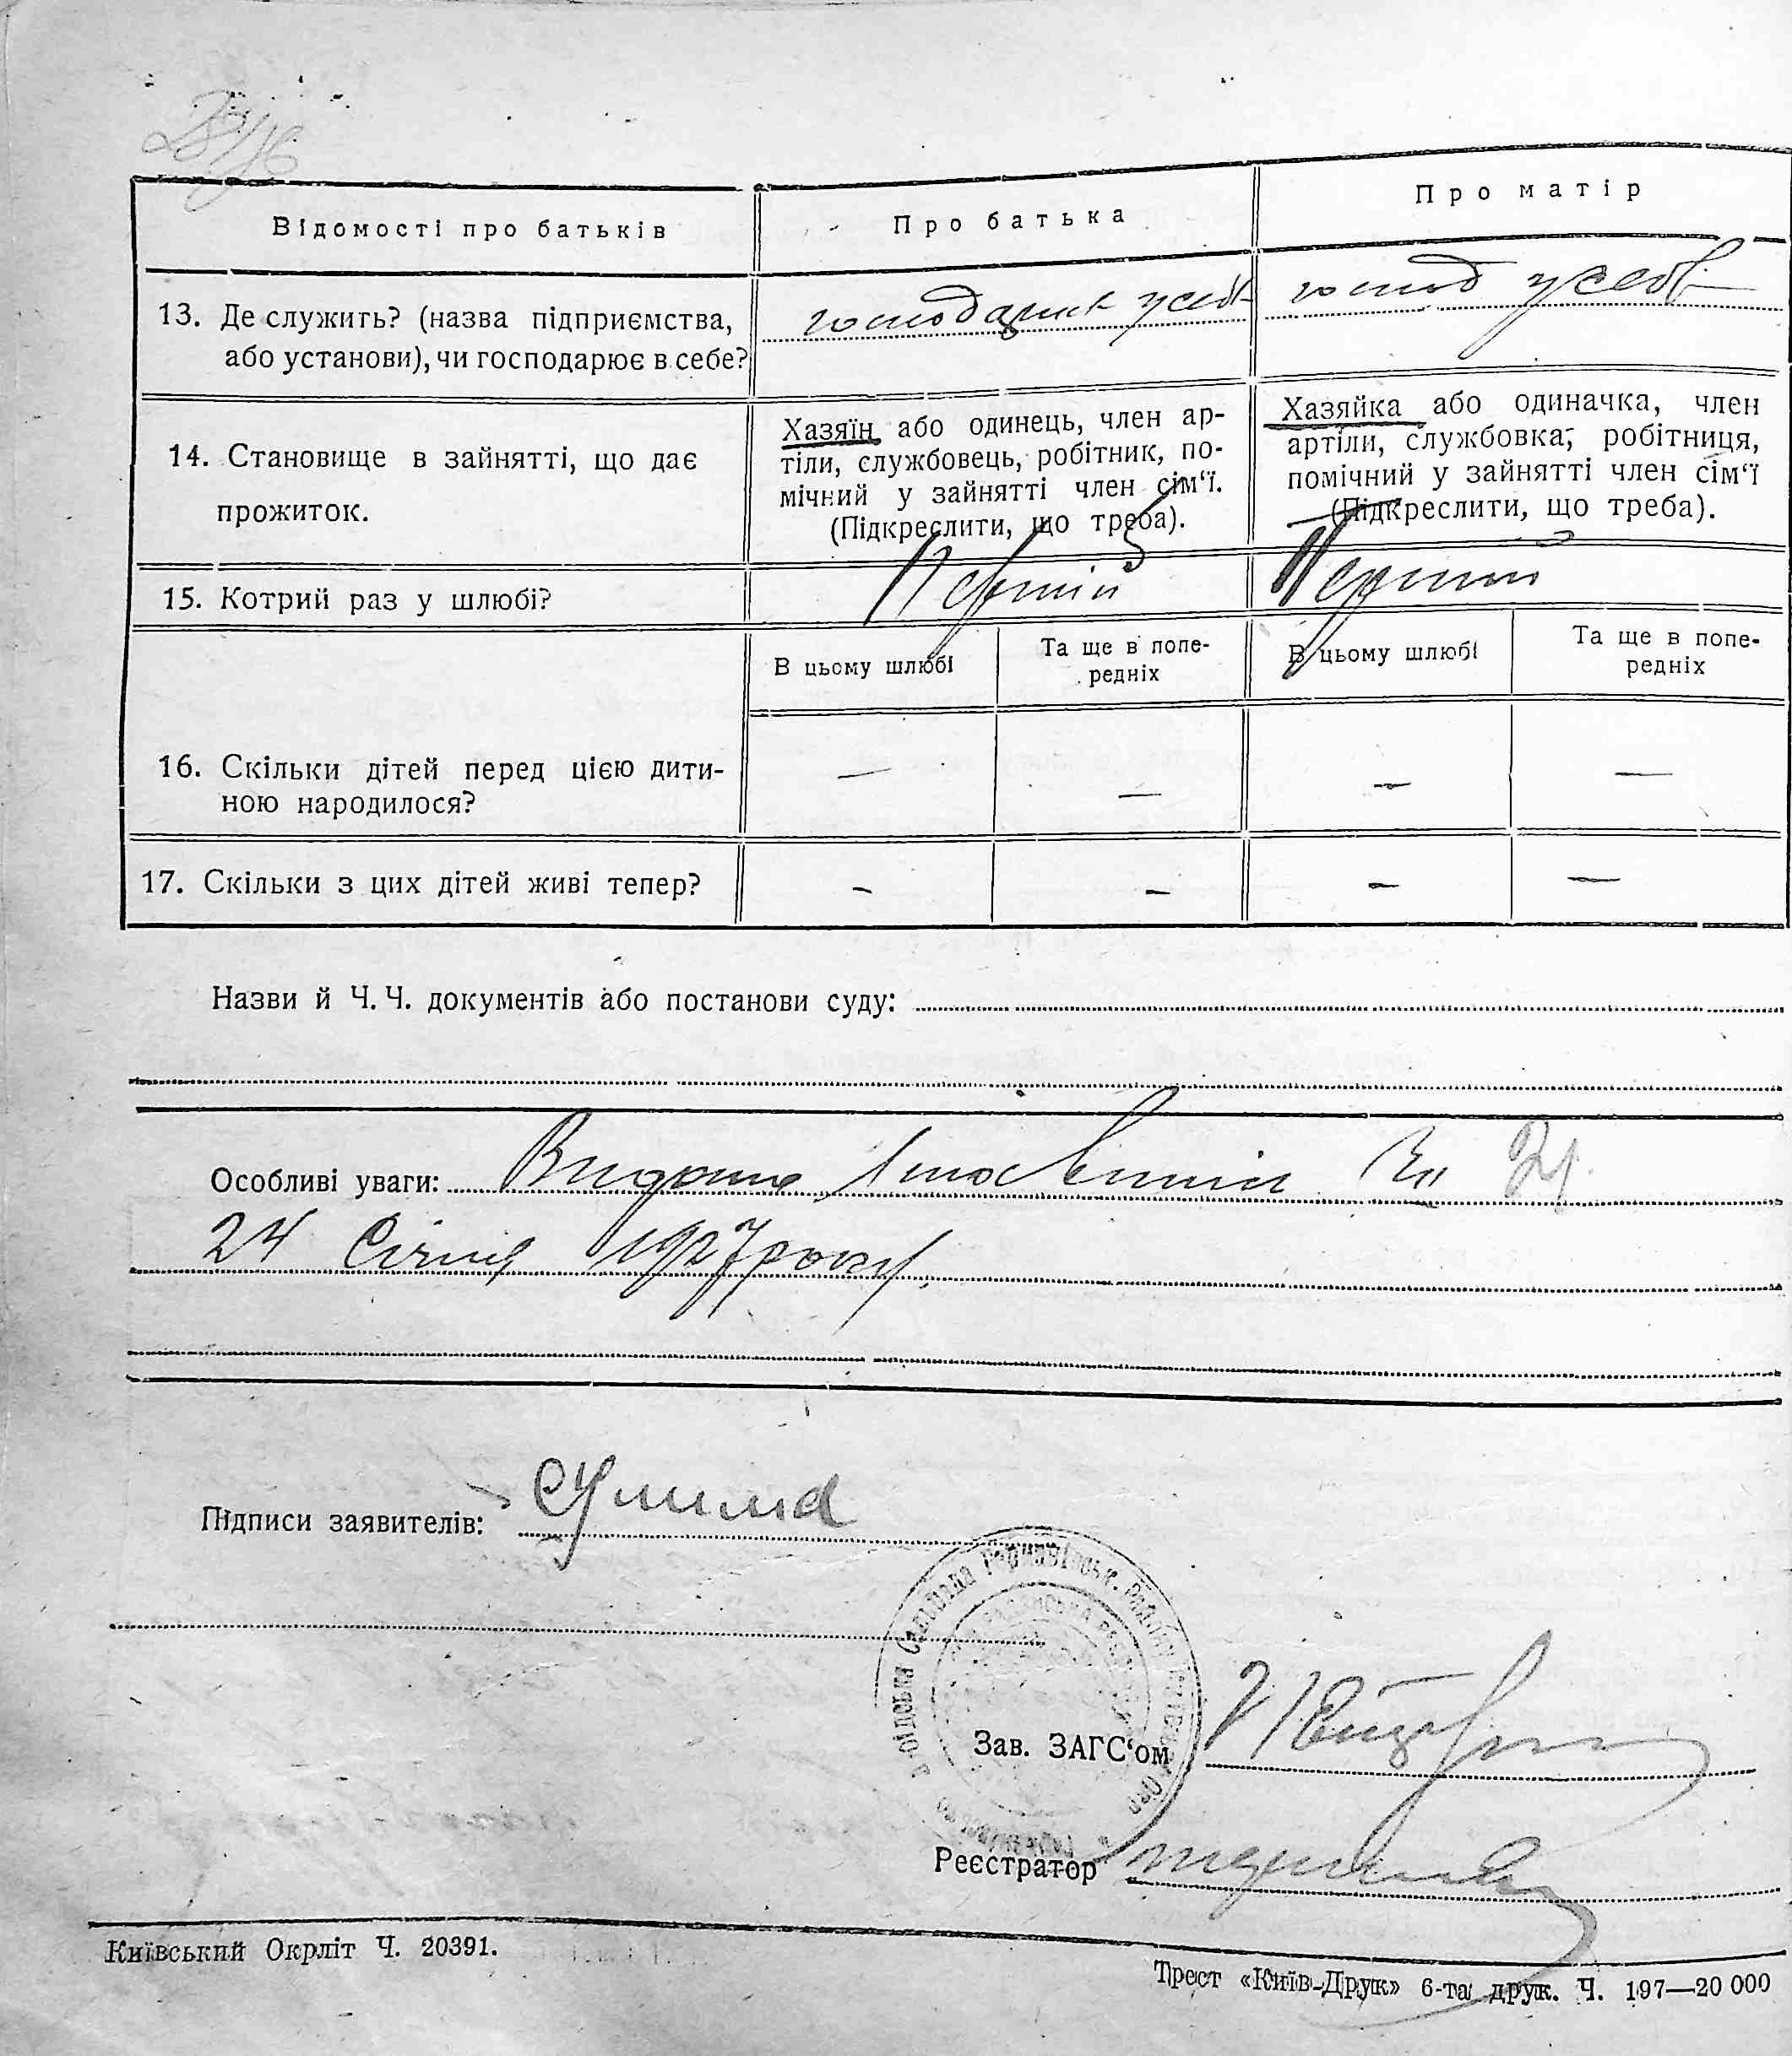 Відомості про батьків
Про батька
Про матір
13. Де служить? (назва підприємства,
або установи), чи господарює в себе?
господарює усебе
господ усебе
14. Становище в зайнятті, що дає
прожиток.
Хазяїн або одинець, член ар-
тіли, службовець, робітник, по-
мічний у зайнятті член сім‘ї.
(Підкреслити, що треба).
Хазяйка або одиначка, член
артіли, службовка, робітниця,
помічний у зайнятті член сім‘ї
(Підкреслити, що треба).
15. Котрий раз у шлюбі?
Первий
Первий
В цьому шлюбі
Та ще в попе-
редніх
В цьому шлюбі
Та ще в попе-
редніх
16. Скільки дітей перед цією дити-
ною народилося?
— — — —
17. Скільки з цих дітей живі тепер?
— — — —
Назви й Ч. Ч. документів або постанови суду:
Особливі уваги: Видано
24 Січня 1927 року.
Підписи заявителів:
Зав. ЗАГС‘ом
Реєстратор
Київський Окрліт Ч. 20391.
Трест «Київ-Друк» 6-та друк. Ч. 197—20 000